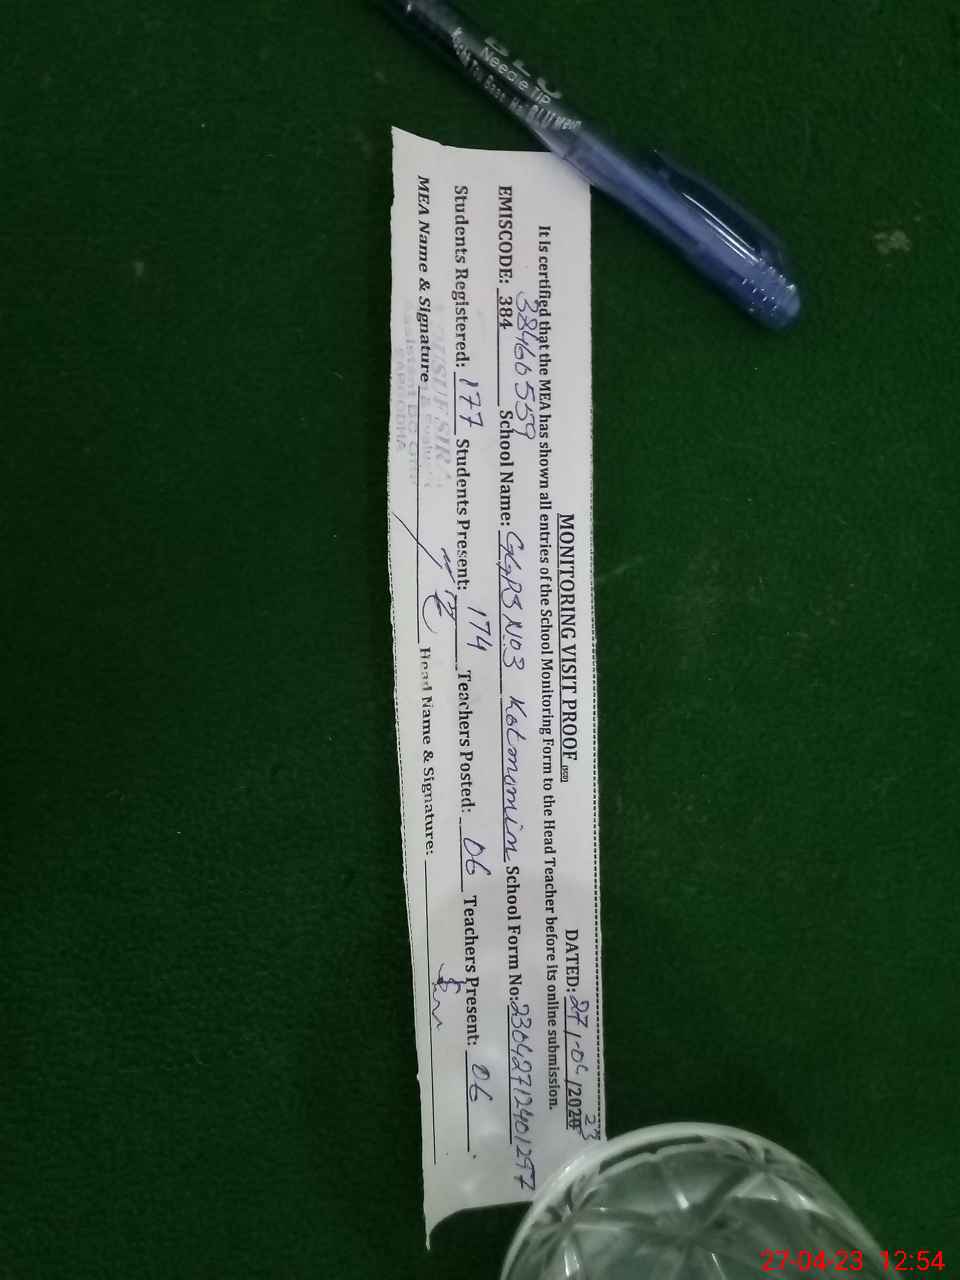 MONITORING VISIT PROOF DATED: 27/-04/2020 23
It is certified that the MEA has shown all entries of the School Monitoring Form to the Head Teacher before its online submission.
38460559
EMISCODE: 384 School Name: GGPS No.3 Kotmomin School Form No: 23042712401297
Students Registered: 177 Students Present: 174 Teachers Posted: 06 Teachers Present: 06
MEA Name & Signature Head Name & Signature:
Needle TIP
27-04-23 12:54